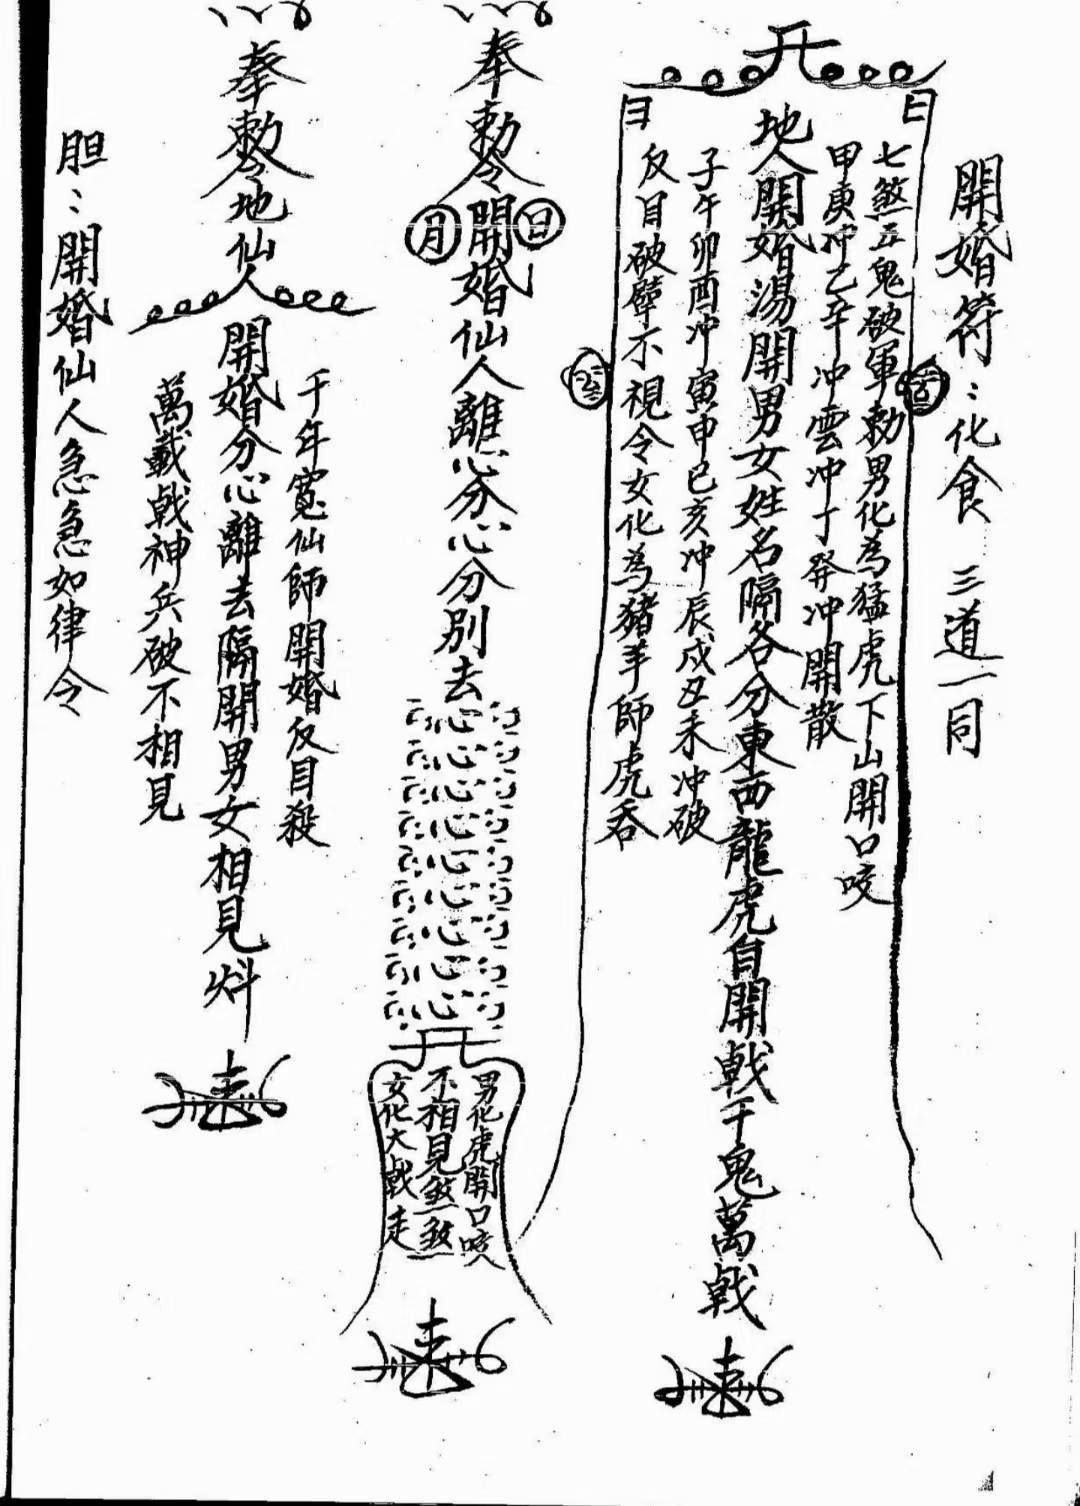 開婚符：化食 三道一同
日
七煞五鬼破軍勅男化為猛虎下山開口咬
甲庚冲乙辛冲雲冲丁癸冲開散
地人開婚湯開男女姓名隔各分東西龍虎自開戟千鬼萬戟
子午卯酉冲寅申巳亥冲辰戌丑未冲破
反目破壁不視令女化為豬羊師虎吞
奉勅令開婚仙人離心分心分别去
日
月
心
心
心
心
心
心
心
心
心
男化虎開口咬
不相見煞煞
女化犬戟走
奉勅令地仙人
千年寃仙師開婚反目殺
開婚分心離去隔開男女相見炓
萬載戟神兵破不相見
胆：開婚仙人急急如律令